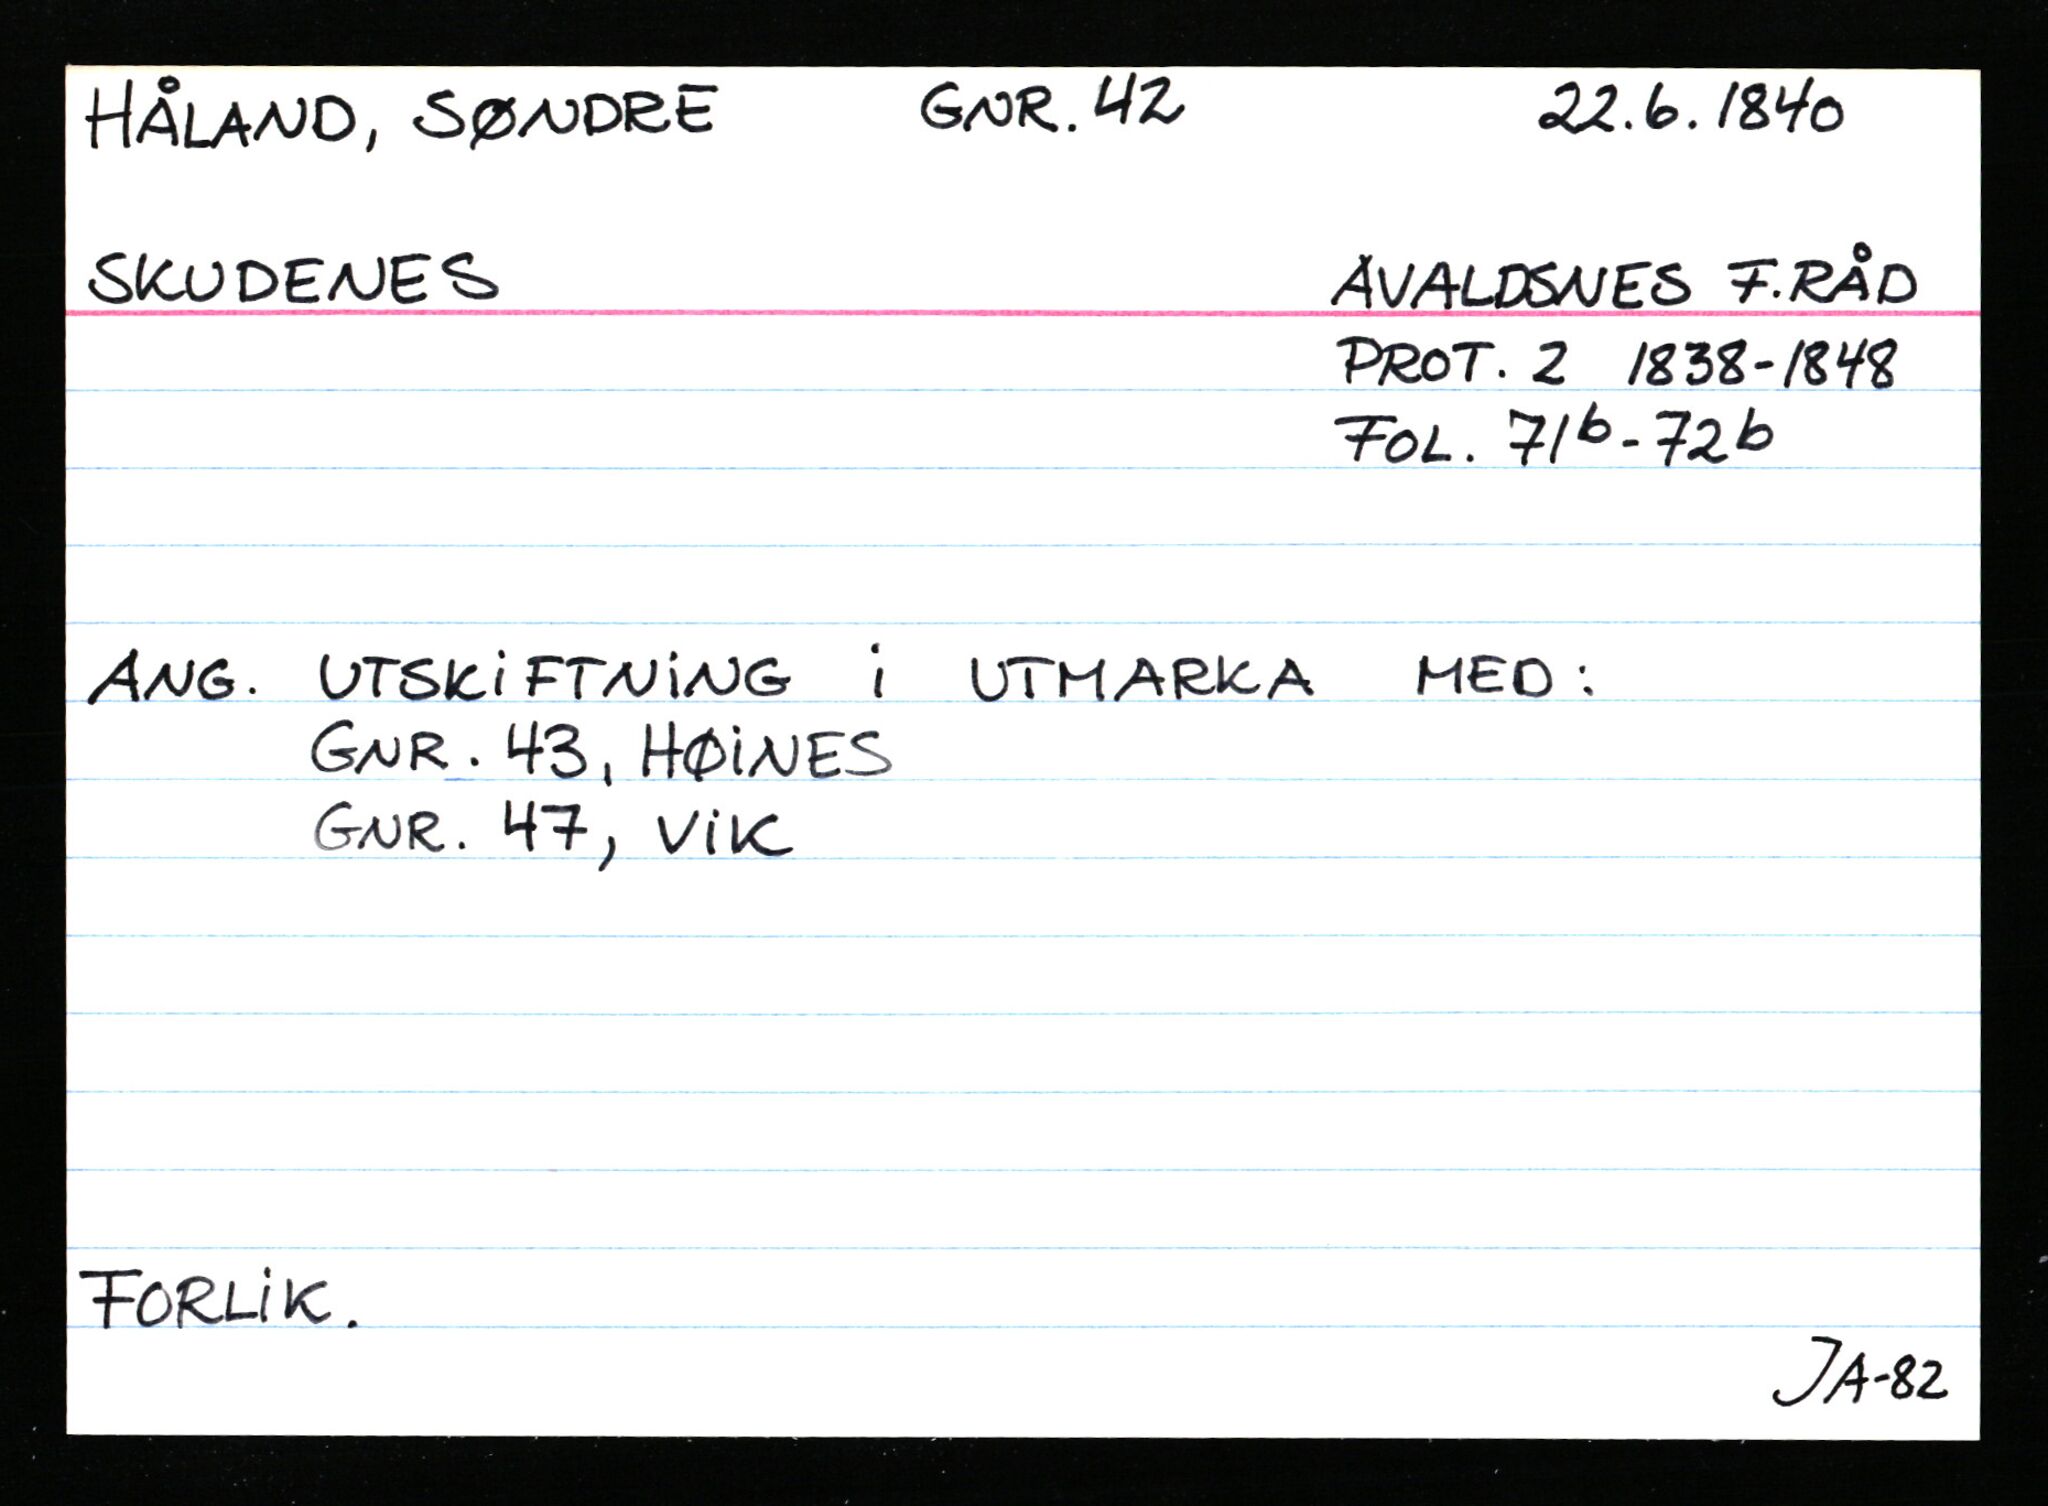 HÅLAND, SØNDRE GNR. 42 22.6.1840
SKUDENES AVALDSNES F.RÅD
PROT. 2 1838-1848
FOL. 71b-72b
ANG. UTSKIFTNING I UTMARKA MED:
GNR. 43, HØINES
GNR. 47, VIK
FORLIK.
JA-82